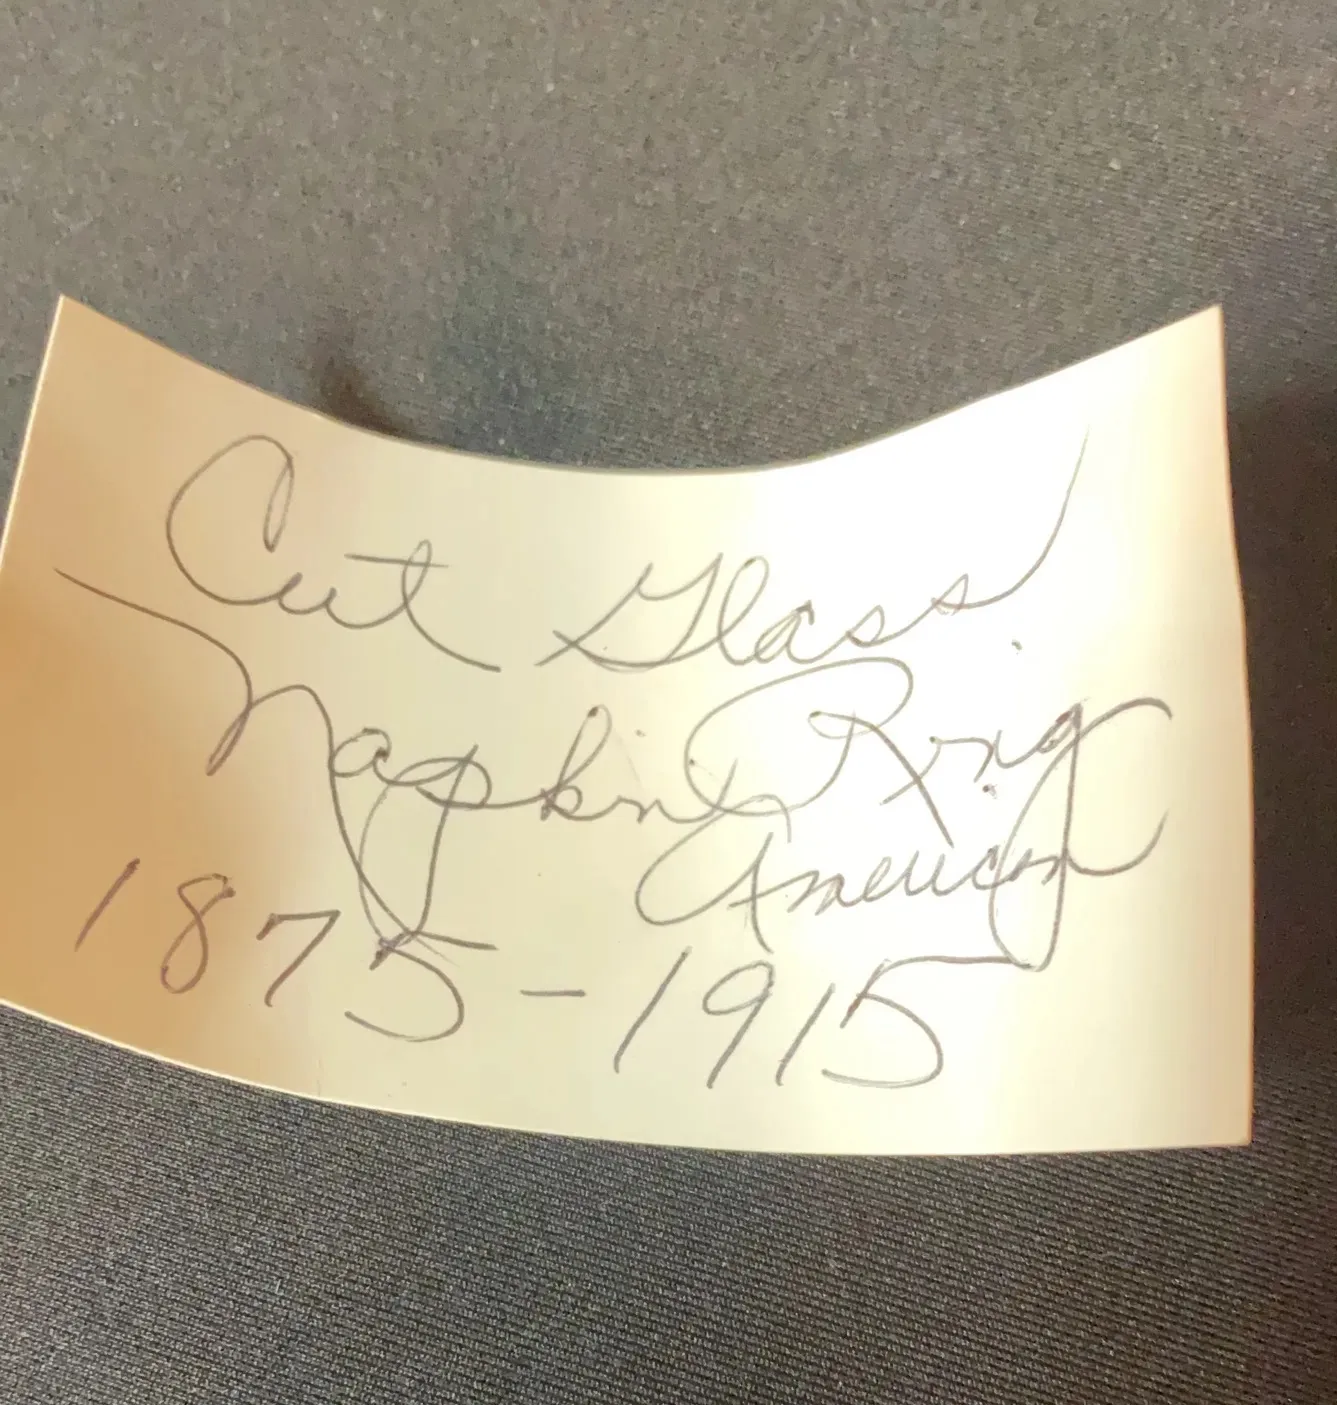 Cut Glass
Napkin Ring
American
1875-1915